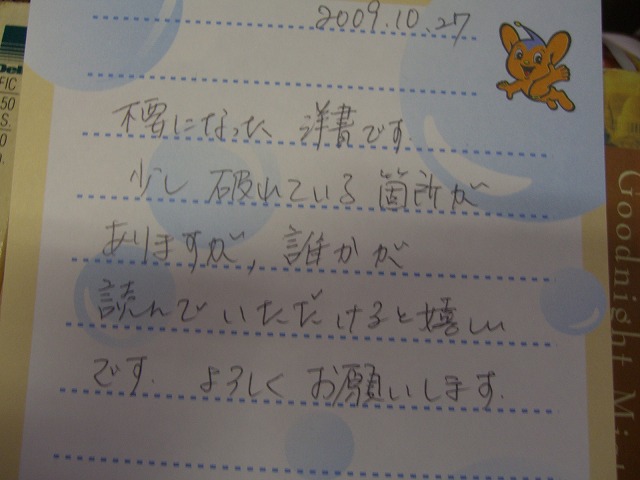 2009.10.27
不要になった 洋書です.
少し 破れている 箇所が
ありますが, 誰かが
読んで いただけると嬉しい
です. よろしく お願いします.
Del
FIC
50
S.
0
Goodnight Mi